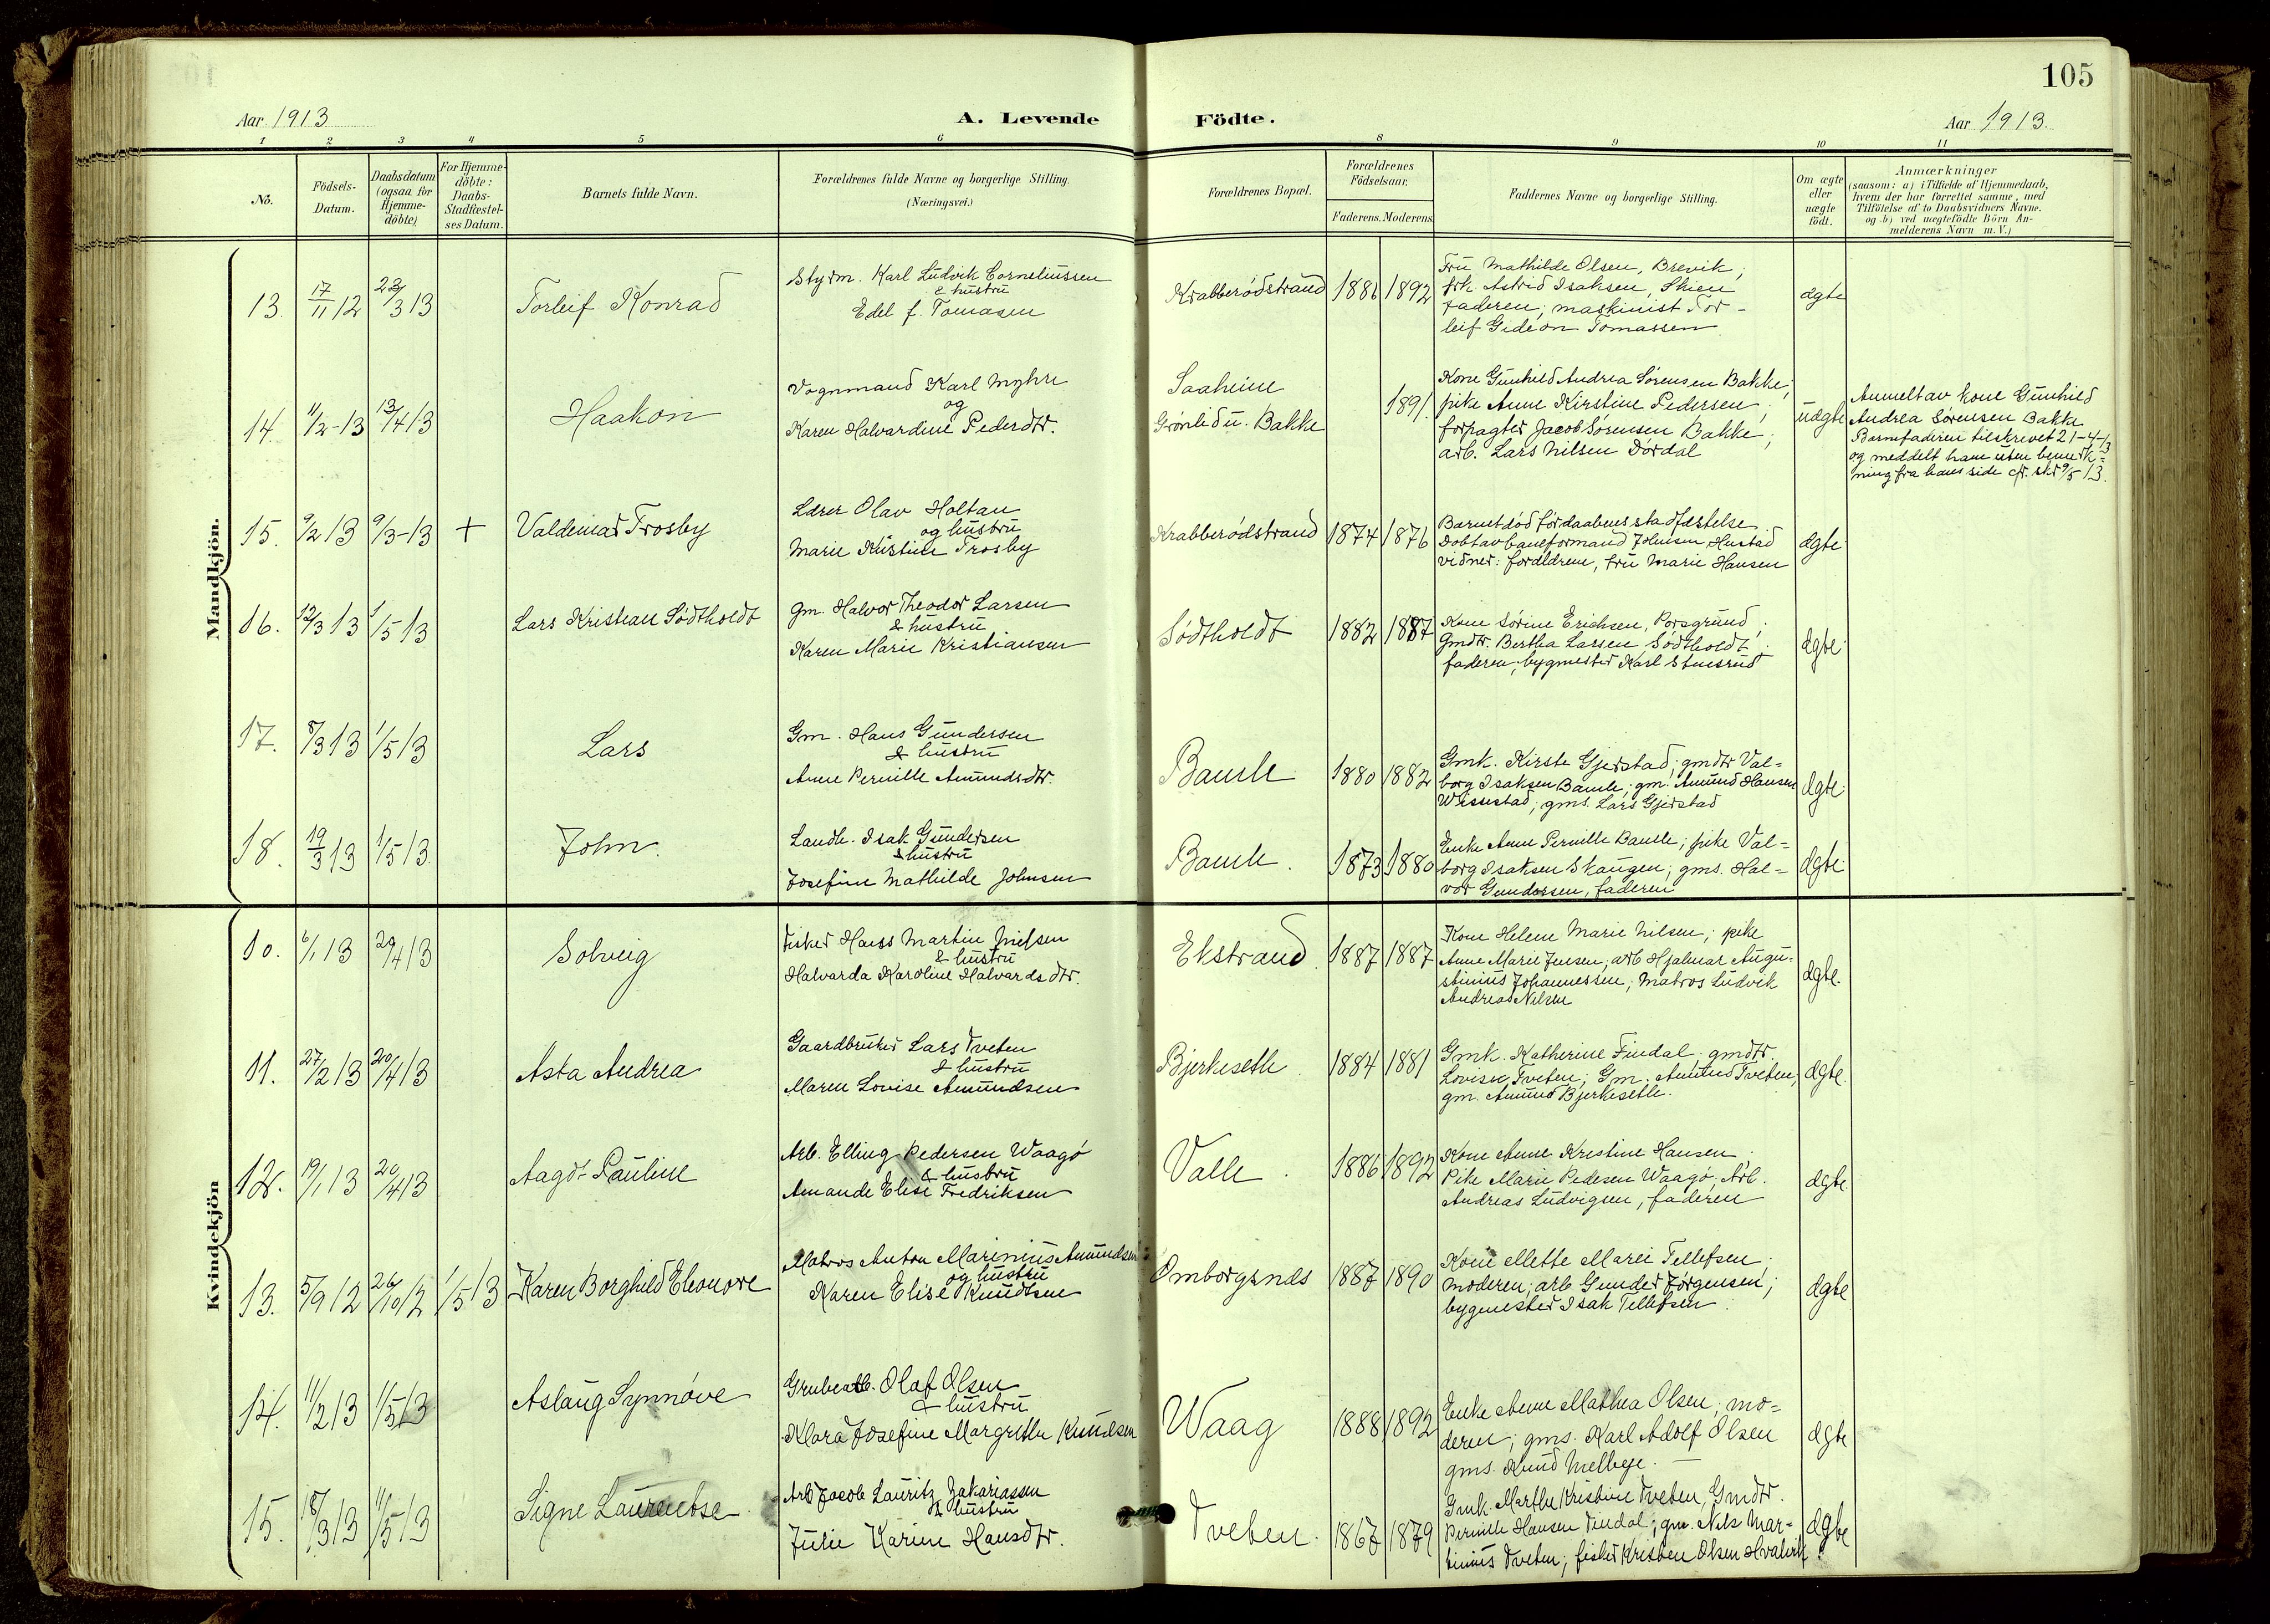 105
Aar 1913
A. Levende Födte.
Aar 1913.
1 2 3 4 5 6 8 9 10 11
No.
Födsels-
Datum.
Daabsdatum
(ogsaa for
Hjemme-
döbte)
For Hjemme-
döbte:
Daabs-
Stadfæstel-
ses Datum.
Barnets fulde Navn.
Forældrenes fulde Navne og borgerlige Stilling.
(Næringsvei.)
Forældrenes Bopæl.
Forældrenes
Födselsaar.
Faderens. Moderens.
Faddernes Navne og borgerlige Stilling.
Om ægte
eller
uægte
födt.
Anmærkninger
(saasom: a) i Tilfælde af Hjemmedaab,
hvem der har forrettet samme, med
Tilföielse af to Daabsvidners Navne.
og b) ved uægtefödte Börn An-
melderens Navn m. V.)
Mandkjön.
13. 17/11 12 23/3 13 Torleif Konrad
Styrm. Karl Ludvik Corneliussen
& hustru
Edel f. Tomasen
Krabberødstrand 1886 1892
Fru Mathilde Olsen, Brevik;
frk. Astrid Isaksen, Skien
Faderen; maskinist Tor-
leif Gideon Tomassen
ægte
14. 11/2-13 13/4 13 Haakon
Vognmand Karl Myhre
og
Karen Halvardine Pedersdtr.
Saaheim
Grønlid u. Bakke
1891.
Kone Gunhild Andrea Sørensen Bakke;
pike Anne Kirstine Pedersen;
forpagter Jacob Sørensen Bakke;
arb. Lars Nilsen Dørdal
uægte
Anmelt av kone Gunhild
Andrea Sørensen Bakke
Barnefaderen tilskrevet 21-4-13
og meddelt ham uten bemerk-
ning fra hans side cfr. skr 9/5 13.
15. 9/2 13 9/3-13 + Valdemar Trosby
Lærer Olav Holtan
og hustru
Marie Kirstine Trosby
Krabberødstrand 1874 1876
Barnet død før daabens stadfæstelse.
Døbt av baneformand Johnsen Hustad
vidner: forældrene, fru Marie Hansen
ægte
16. 12/3 13 1/5 13 Lars Kristian Sødtholdt
gm. Halvor Theodor Larsen
& hustru
Karen Marie Kristiansen
Sødtholdt 1882 1887
Kone Sørine Erichsen, Porsgrund;
Gmdtr. Bertha Larsen Sødtholdt;
faderen; bygmester Karl Stensrud
ægte
17. 8/3 13 1/5 13 Lars
Gm. Hans Gundersen
& hustru
Anne Pernille Amundsdtr.
Bamle 1880 1882
Gmk. Kirste Gjerstad; gmdtr Val-
borg Isaksen Bamle; gm. Amund Hansen
Wissestad; gms. Lars Gjerstad
ægte
18. 19/3 13 1/5 13. John.
Landh. Isak Gundersen
& hustru
Josefine Mathilde Johnsen
Bamle. 1873 1880
Enke Anne Pernille Bamle; pike Val-
borg Isaksen Skaugen; gms. Hal-
vor Gundersen, faderen
ægte
Kvindekjön
10. 6/1 13 20/4 13 Solveig
Fisker Hans Martin Nielsen
& hustru
Halvarda Karoline Halvardsdtr.
Ekstrand 1887 1887
Kone Helene Marie Nilsen; pike
Anne Marie Jensen; arb Hjalmar Augu-
stinius Johannessen; Matros Ludvik
Andreas Nilsen
ægte.
11. 27/2 13 20/4 13 Asta Andrea
Gaardbruker Lars Tveten
& hustru
Maren Lovise Amundsen
Bjerkeseth 1884 1881
Gmk. Katherine Findal; gmdtr.
Lovise Tveten; Gm. Amund Tveten;
gm. Amund Bjerkeseth.
ægte.
12. 19/1 13 20/4 13 Aagot Pauline
Arb. Elling Pedersen Waagø
& hustru
Amande Elise Fredriksen
Valle 1886 1892
Kone Anne Kristine Hansen;
Pike Marie Pedesen Waagø; Arb.
Andreas Ludvigsen, faderen
ægte.
13. 5/9 12 26/10 12 1/5 13 Karen Borghild Eleonore
Matros Anton Marinius Amundsen
og hustru
Karen Elise Knudtsen
Omborgsnds 1887 1890
Kone Mette Marie Tellefsen;
moderen; arb Gunder Jørgensen;
bygmester Isak Tellefsen
ægte
14. 11/2 13 11/5 13 Aslaug Synnøve
Grubearb. Olaf Olsen
& hustru
Klara Josefine Margrethe Knudsen
Waag 1888 1892
Enke Anne Mathea Olsen; mo-
deren; gms. Karl Adolf Olsen
gms. Knud Melbye.
ægte
15. 18/3 13 11/5 13 Signe Laurentse
Arb Jacob Lauritz Zakariassen
& hustru
Julie Karine Hansdtr.
Tveten. 1867 1879
Gmk. Marthe Kristine Tveten, Gmdtr.
Pernille Hansen Findal; gm. Nils Mar-
tinius Tveten; fisker Kristen Olsen Hvalvik
ægte